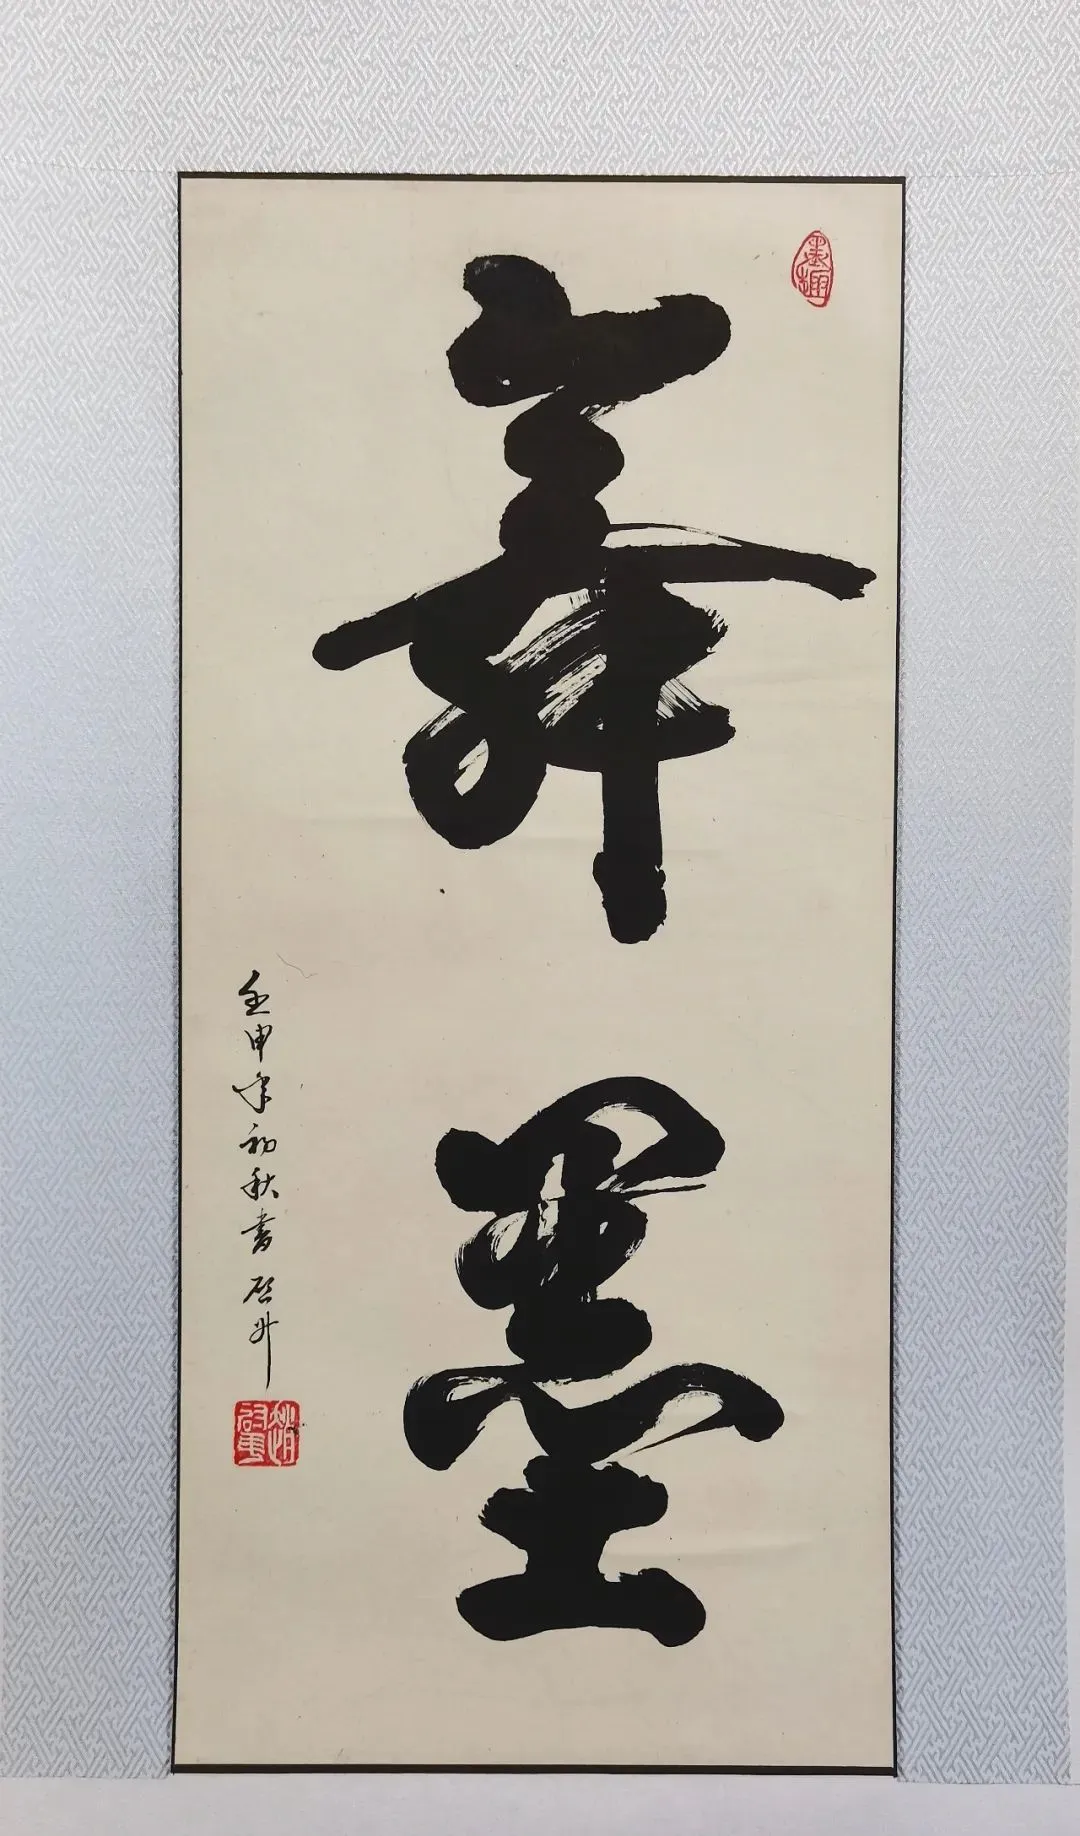 墨趣
舞墨
壬申年初秋书启升